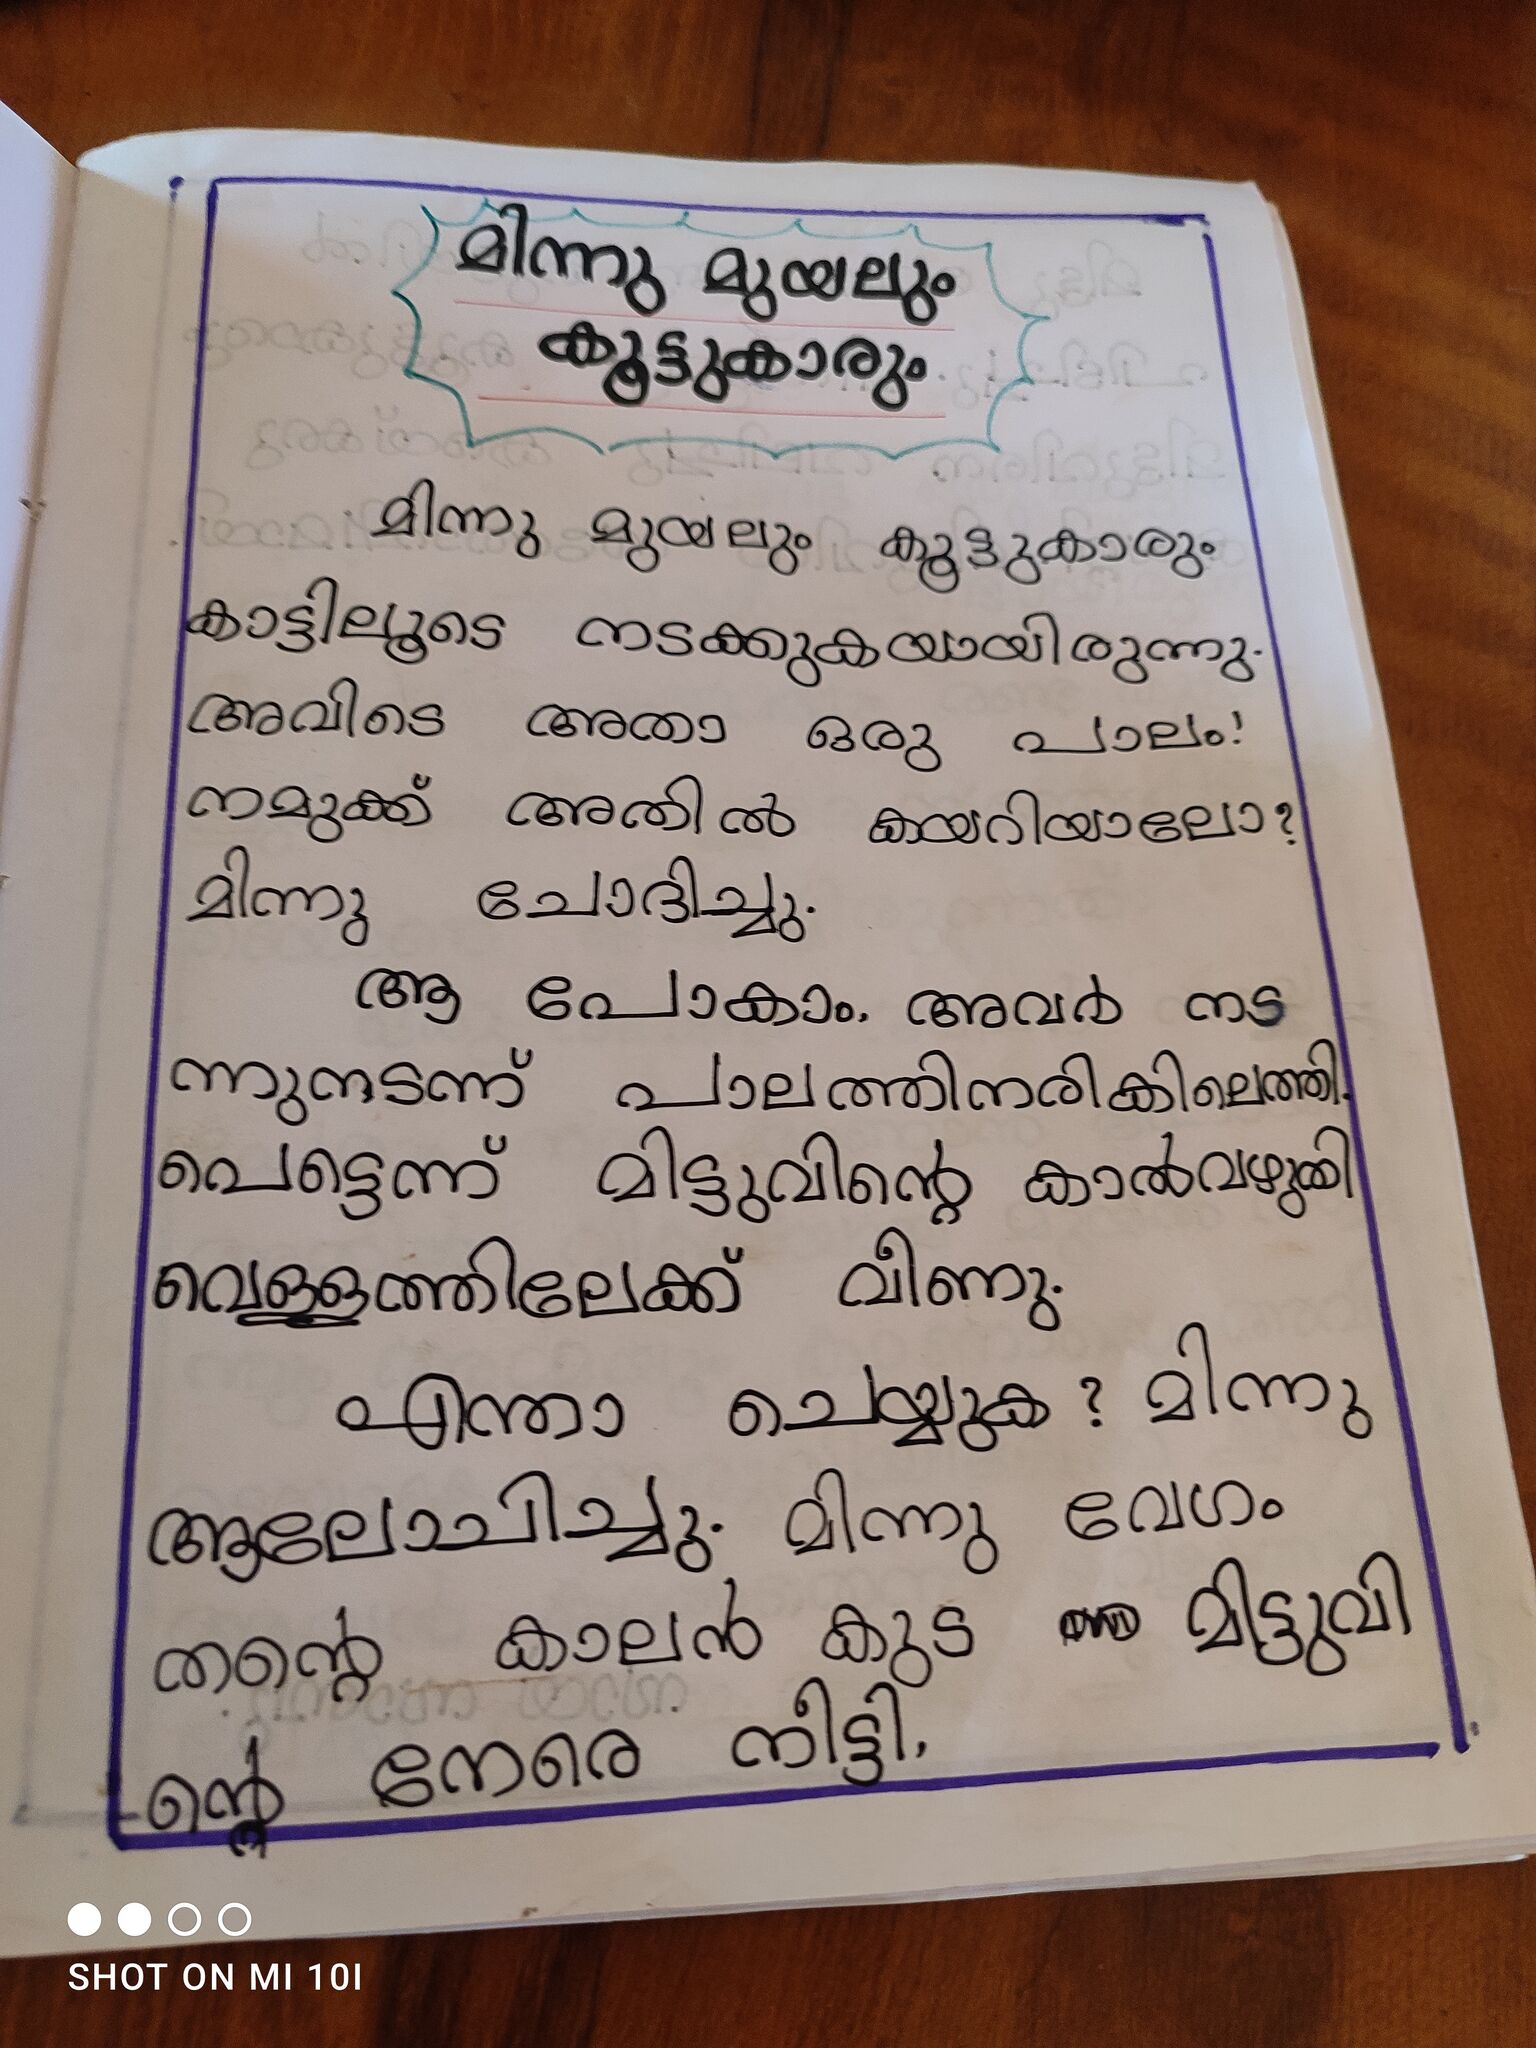 മിന്നു മുയലും
കൂട്ടുകാരും
മിന്നു മുയലും കൂട്ടുകാരും
കാട്ടിലൂടെ നടക്കുകയായിരുന്നു.
അവിടെ അതാ ഒരു പാലം!
നമുക്ക് അതിൽ കയറിയാലോ?
മിന്നു ചോദിച്ചു.
ആ പോകാം. അവർ നട
ന്നുനടന്ന് പാലത്തിനരികിലെത്തി.
പെട്ടെന്ന് മിട്ടുവിന്റെ കാൽവഴുതി
വെള്ളത്തിലേക്ക് വീണു.
എന്താ ചെയ്യുക? മിന്നു
ആലോചിച്ചു. മിന്നു വേഗം
തന്റെ കാലൻ കുട മിട്ടുവി
ന്റെ നേരെ നീട്ടി.
SHOT ON MI 10I